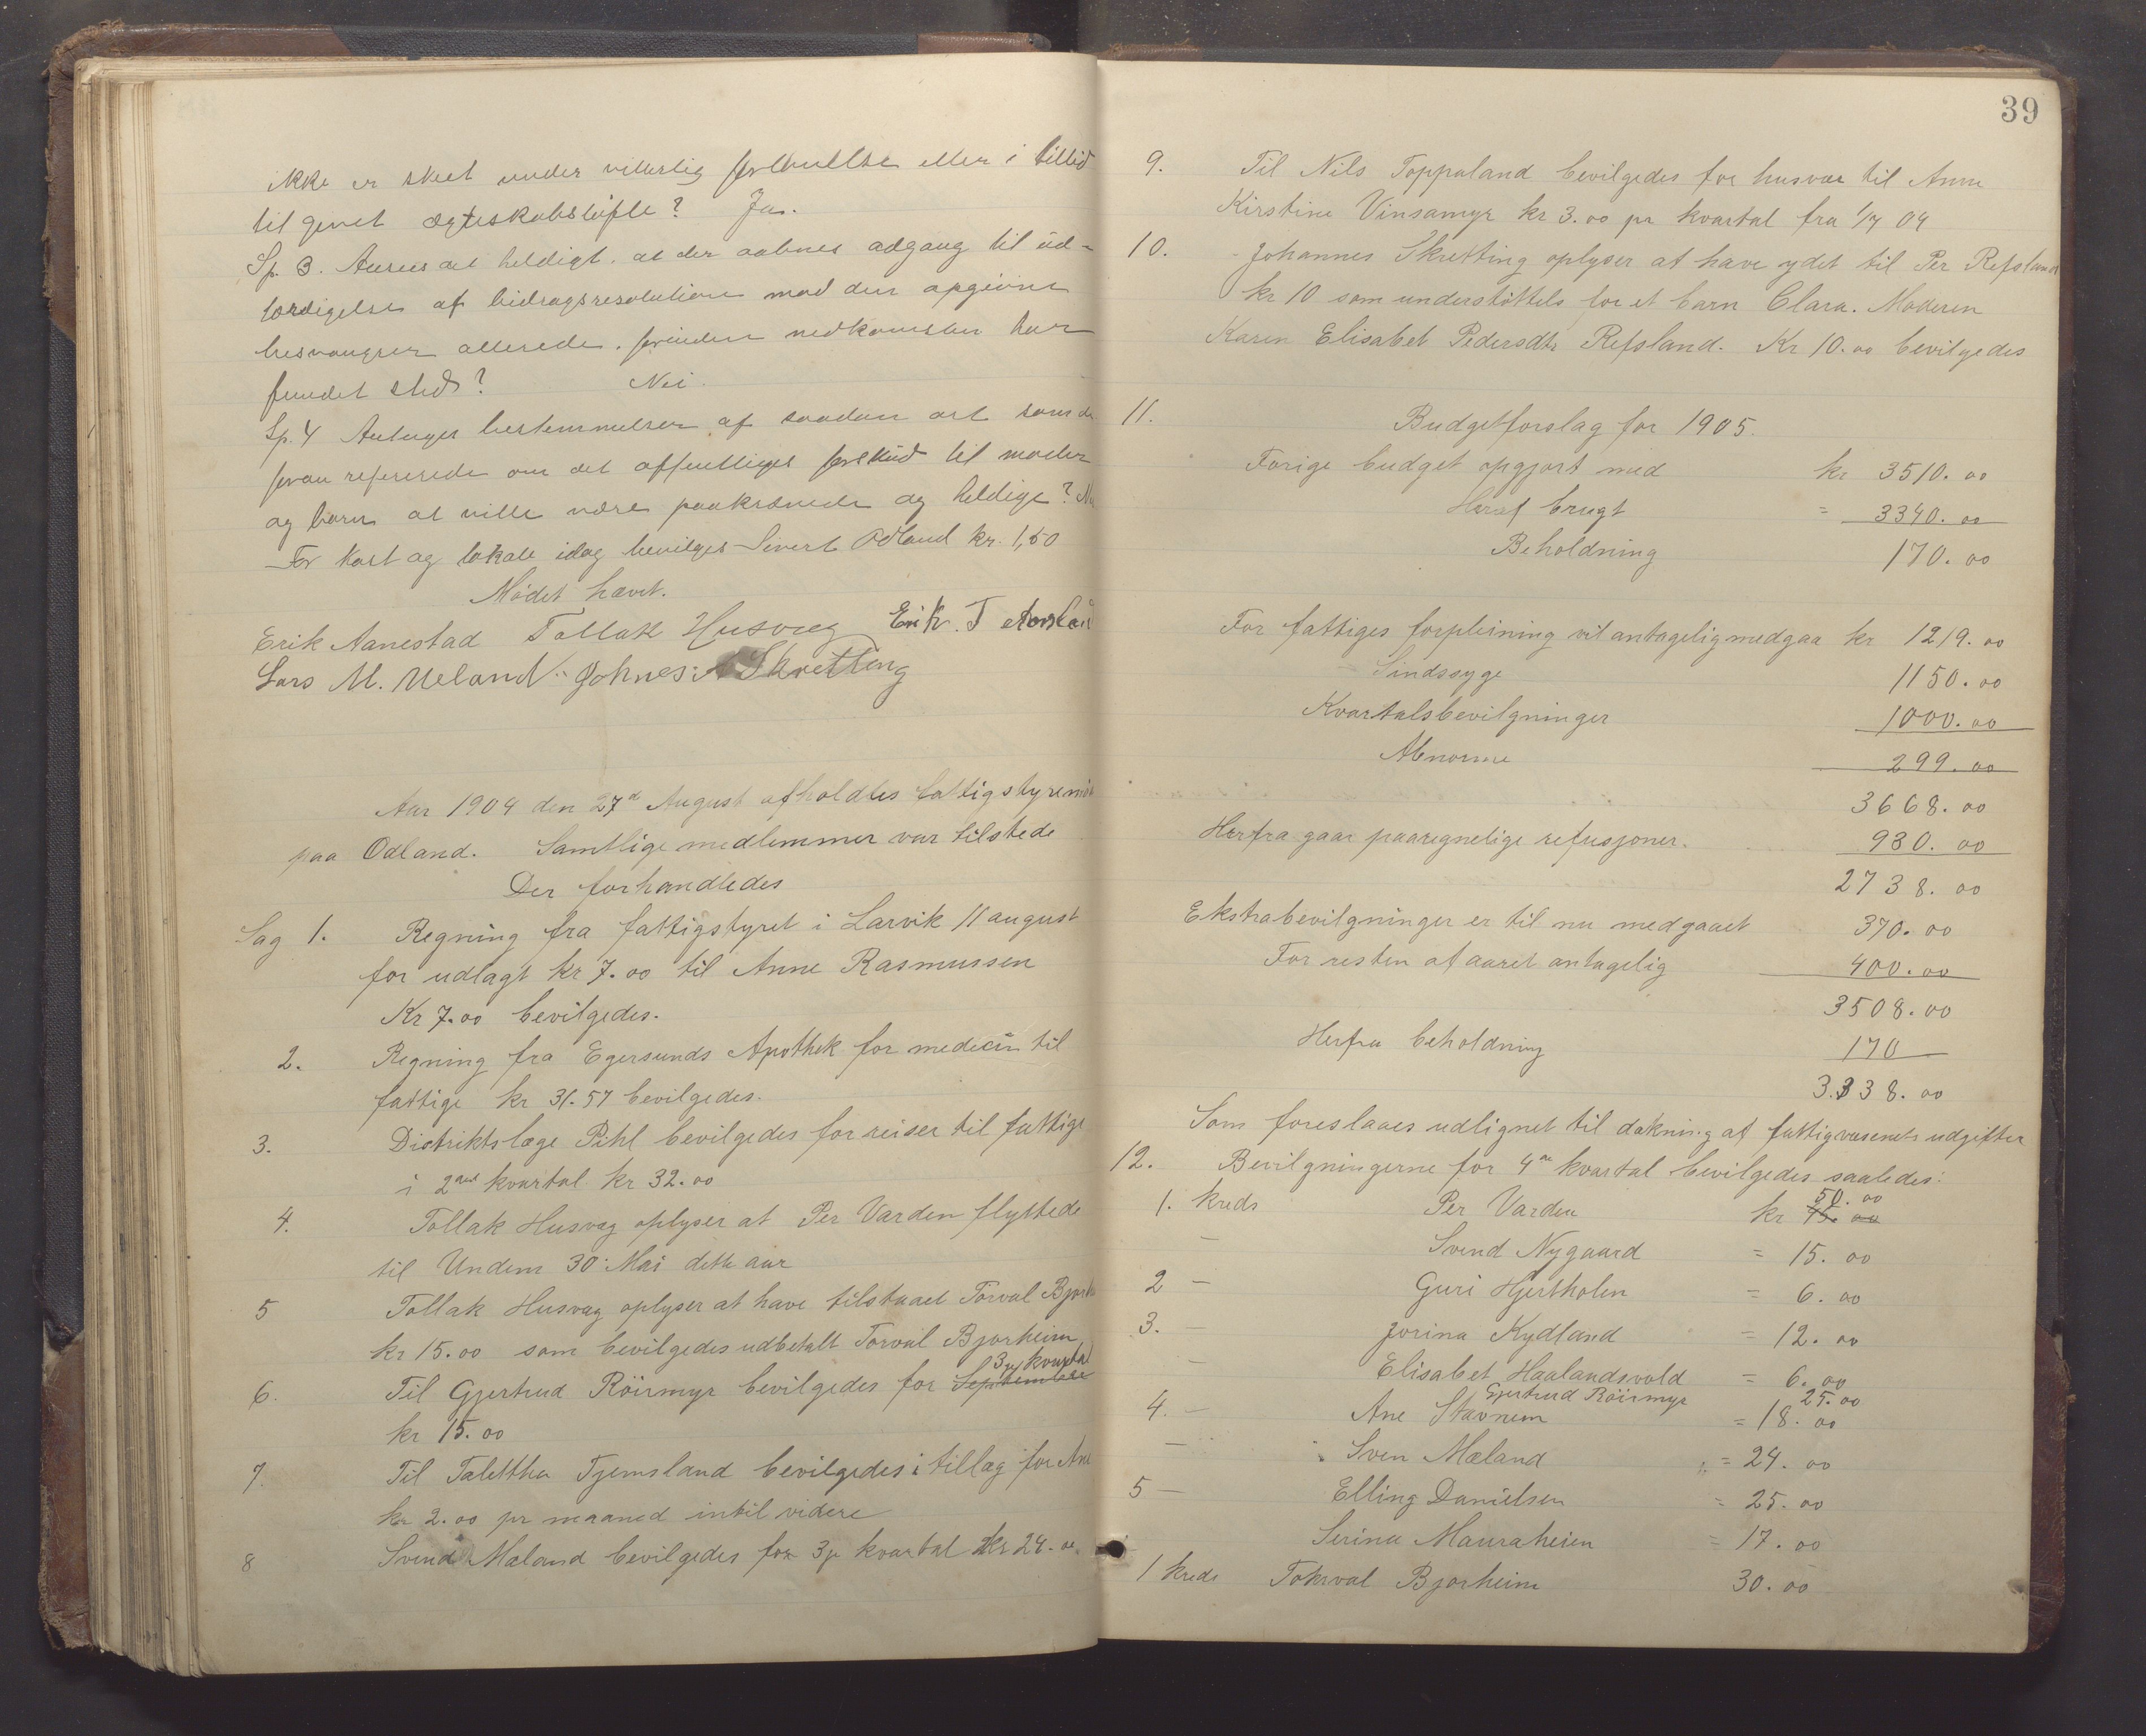 ikke er skeet under vilkarlig forbullse eller i tillid
til givet ægteskabsløfte? Ja.
Sp. 3. Ansees det heldigt, at der aabnes adgang til ud-
færdigelse af bidragsresolution mod den opgivne
besvangrer allerede, forinden nedkomsten har
fundet sted? Nei.
Sp. 4 Antages bestemmelser af saadan art som de
foran refererede om det offentliges forskud til moder
og barn at ville være paakrævede og heldige? Nei
For kost og lokale idag bevilges Sivert Odland kr. 1,50
Mødet hævet.
Erik Aanestad Tollak Husvæg Erik. T Aarsland
Lars M. Ueland. Johnes: A Skretting
Aar 1904 den 27de August afholdtes fattigstyremøde
paa Odland. Samtlige medlemmer var tilstede
Der forhandledes
Sag 1. Regning fra fattigstyret i Larvik 11 august
for udlagt kr 7.00 til Anne Rasmussen
Kr 7.00 bevilgedes.
2. Regning fra Egersunds Apothek for medicin til
fattige kr 31.57 bevilgedes.
3. Distriktslæge Pihl bevilgedes for reiser til fattige
i 2det kvartal kr 32.00
4. Tollak Husvæg oplyser at Per Varden flyttede
til Undem 30. Mai dette aar
5 Tollak Husvæg oplyser at have tilstaaet Torval Bjorh
kr 15.00 som bevilgedes udbetalt Torval Bjorheim
3je kvartal
6. Til Gjertrud Röirmyr bevilgedes for September
kr 15.00
7. Til Talettha Tjemsland bevilgedes i tillæg for Ane
kr 2.00 pr maaned intil videre
8 Svend Mæland bevilgedes for 3je kvartal kr 24.00.
39
9. Til Nils Toppaland bevilgedes for husvær til Anne
Kirstine Vinsamyr kr 3.00 pr kvartal fra 1/7 04
10. Johannes Skretting oplyser at have ydet til Per Refsland
kr 10 som understöttels for et barn Clara. Moderen
Karen Elisabet Pedersdtr Refsland. Kr 10.00 bevilgedes
11. Budgetforslag for 1905.
Forige budget opgjort med kr 3510.00
Heraf brugt = 3340.00
Beholdning 170.00
For fattiges forpleining vil antagelig medgaa kr 1219.00
Sindssyge 1150.00
Kvartalsbevilgninger 1000.00
Abnorme 299.00
3668.00
Herfra gaar paaregnelige refusjoner. 930.00
2738.00
Ekstrabevilgninger er til nu medgaaet 370.00
For resten af aaret antagelig 400.00
3508.00
Herfra beholdning 170
3.338.00
Som foreslaaes udlignet til dækning af fattigvæsenets udgifter
12. Bevilgningerne for 4de kvartal bevilgedes saaledes:
50.00
1. kreds Per Varden kr 75.00
— Svend Nygaard = 15.00
2 — Guri Hjertholen = 6.00
3. — Jorina Kydland = 12.00
— Elisabet Haalandsvold = 6.00
Gjertrud Röirmyr 25.00
4. — Ane Stavnem = 18.00
— Sven Mæland = 24.00
5 — Elling Danielsen = 25.00
Serina Mauraheien = 17.00
1 kreds Tohrval Bjorheim 30.00